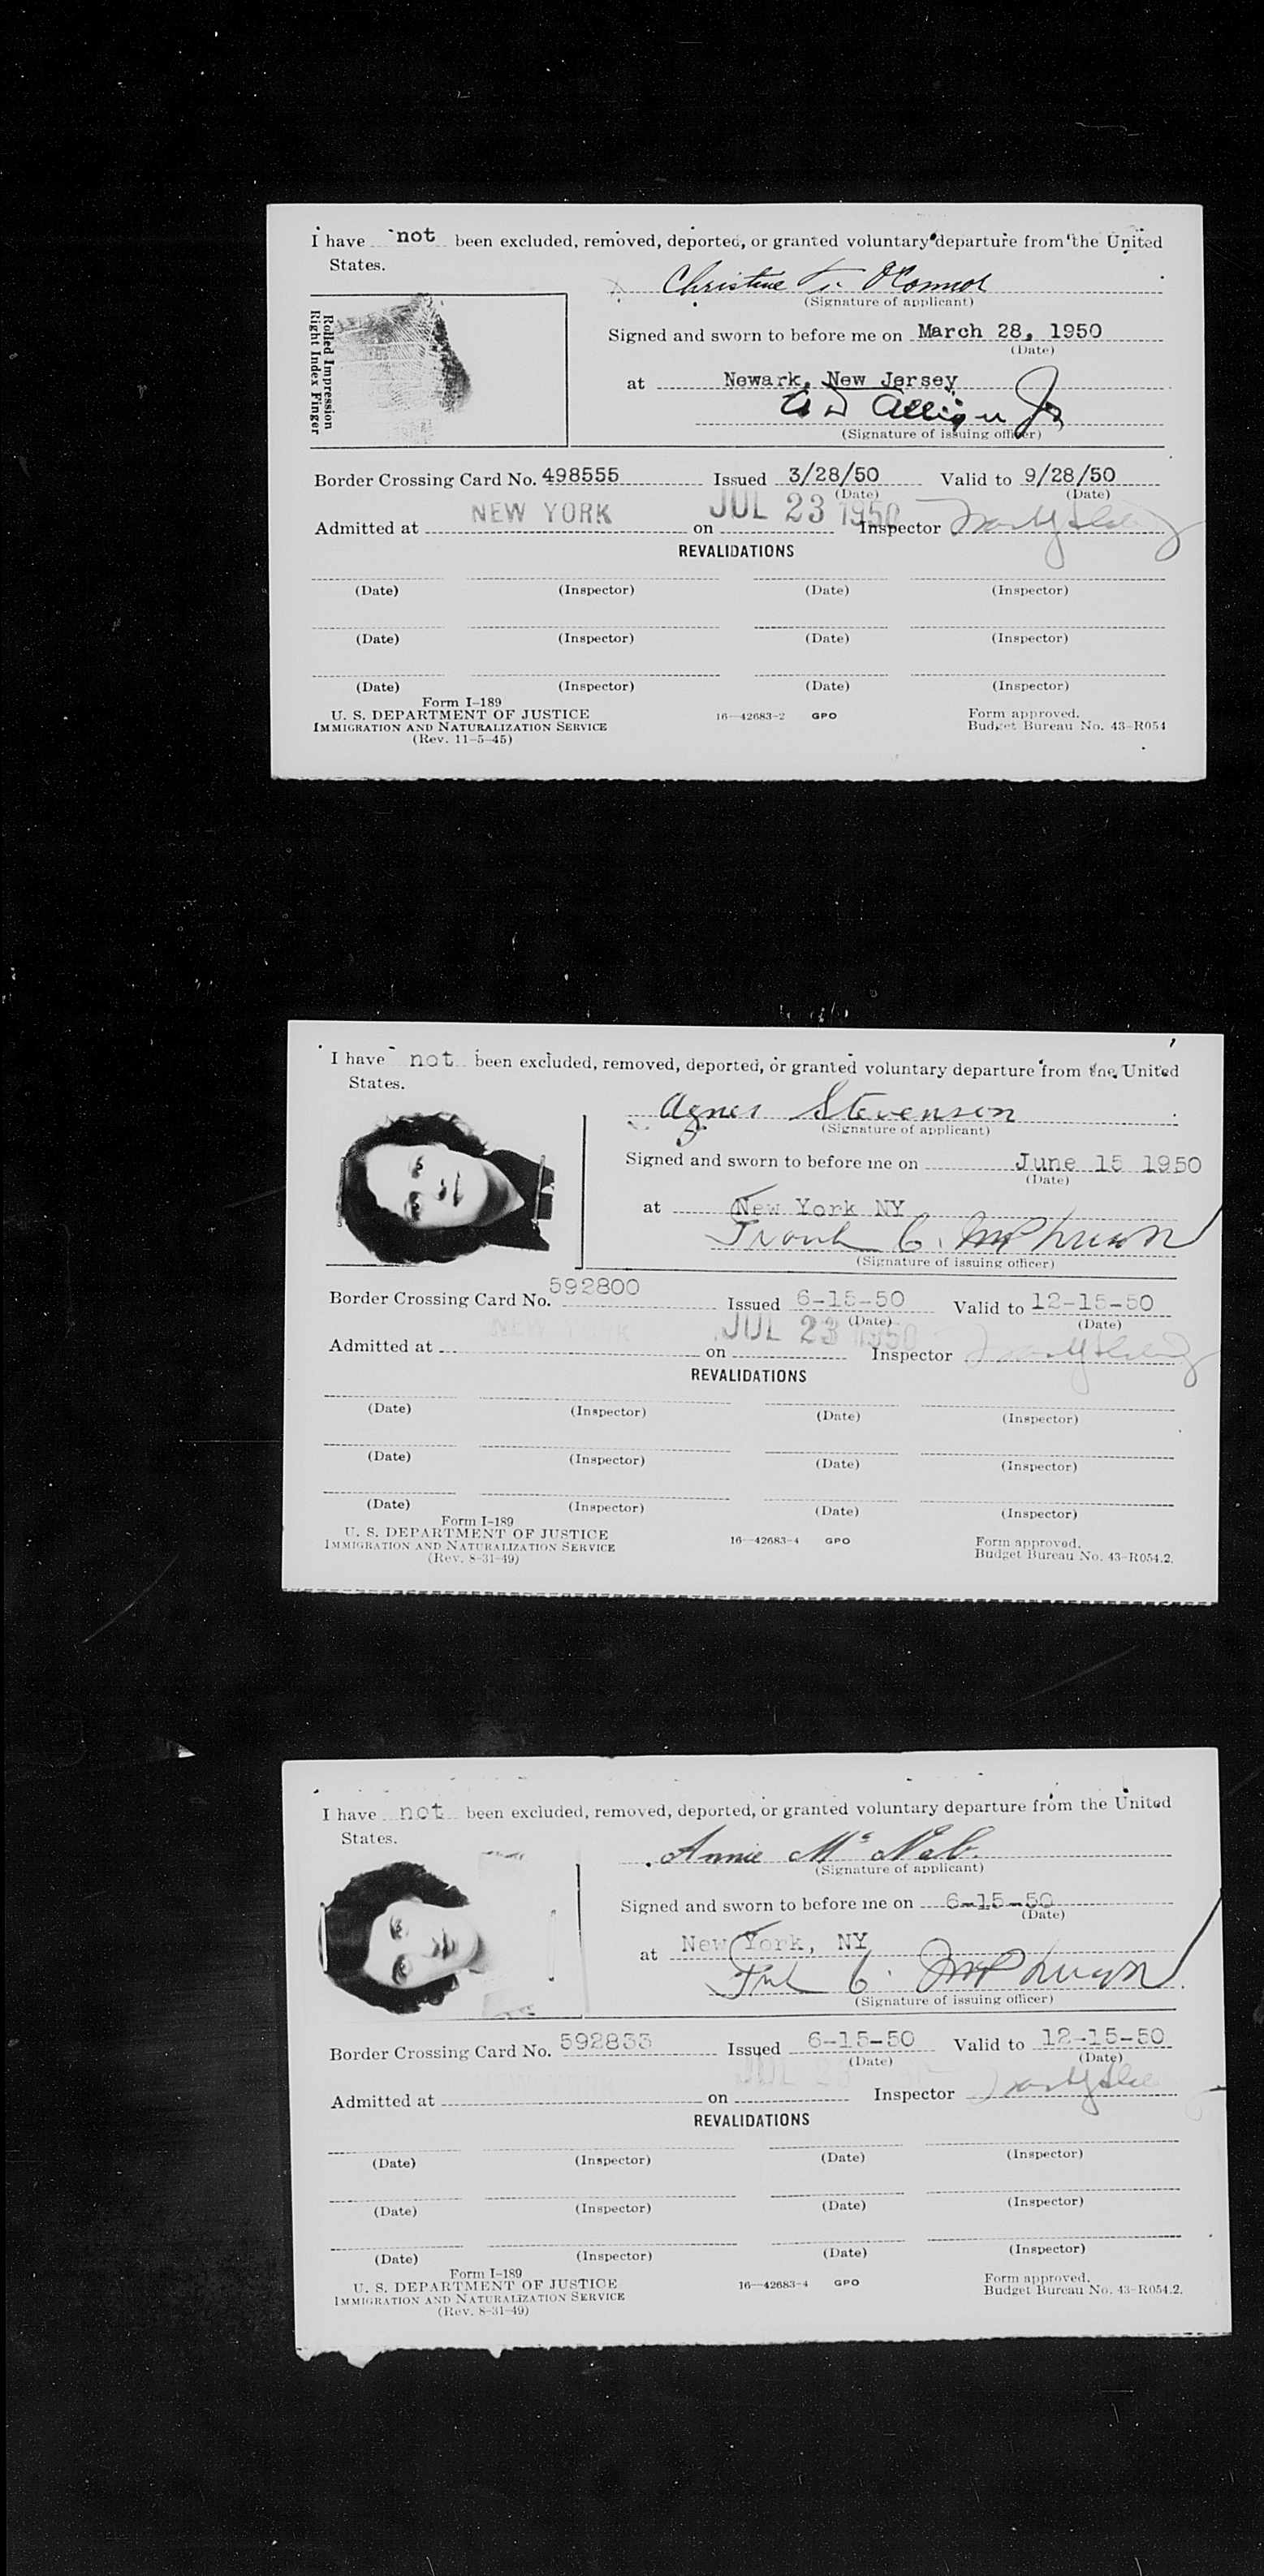 I have not been excluded, removed, deported, or granted voluntary departure from the United
States.
Christine O'Connor
(Signature of applicant)
Rolled Impression
Right Index Finger
Signed and sworn to before me on March 28, 1950
(Date)
at Newark, New Jersey
(Signature of issuing officer)
Border Crossing Card No. 498555 Issued 3/28/50 Valid to 9/28/50
(Date) (Date)
Admitted at NEW YORK on JUL 23 1950 Inspector
REVALIDATIONS
(Date) (Inspector) (Date) (Inspector)
(Date) (Inspector) (Date) (Inspector)
(Date) (Inspector) (Date) (Inspector)
Form I-189
U. S. DEPARTMENT OF JUSTICE 16—42683-2 GPO Form approved.
IMMIGRATION AND NATURALIZATION SERVICE Budget Bureau No. 43-R054
(Rev. 11-5-45)
I have not been excluded, removed, deported, or granted voluntary departure from the United
States.
Agnes Stevenson
(Signature of applicant)
Signed and sworn to before me on June 15 1950
(Date)
at New York NY
Frank C.
(Signature of issuing officer)
Border Crossing Card No. 592800 Issued 6-15-50 Valid to 12-15-50
(Date) (Date)
Admitted at NEW YORK on JUL 23 1950 Inspector
REVALIDATIONS
(Date) (Inspector) (Date) (Inspector)
(Date) (Inspector) (Date) (Inspector)
(Date) (Inspector) (Date) (Inspector)
Form I-189
U. S. DEPARTMENT OF JUSTICE 16—42683-4 GPO Form approved.
IMMIGRATION AND NATURALIZATION SERVICE Budget Bureau No. 43-R054.2.
(Rev. 8-31-49)
I have not been excluded, removed, deported, or granted voluntary departure from the United
States.
Annie McNab.
(Signature of applicant)
Signed and sworn to before me on 6-15-50
(Date)
at New York, NY
(Signature of issuing officer)
Border Crossing Card No. 592833 Issued 6-15-50 Valid to 12-15-50
(Date) (Date)
Admitted at on JUL 23 Inspector
REVALIDATIONS
(Date) (Inspector) (Date) (Inspector)
(Date) (Inspector) (Date) (Inspector)
(Date) (Inspector) (Date) (Inspector)
Form I-189
U. S. DEPARTMENT OF JUSTICE 16—42683-4 GPO Form approved.
IMMIGRATION AND NATURALIZATION SERVICE Budget Bureau No. 43-R054.2.
(Rev. 8-31-49)